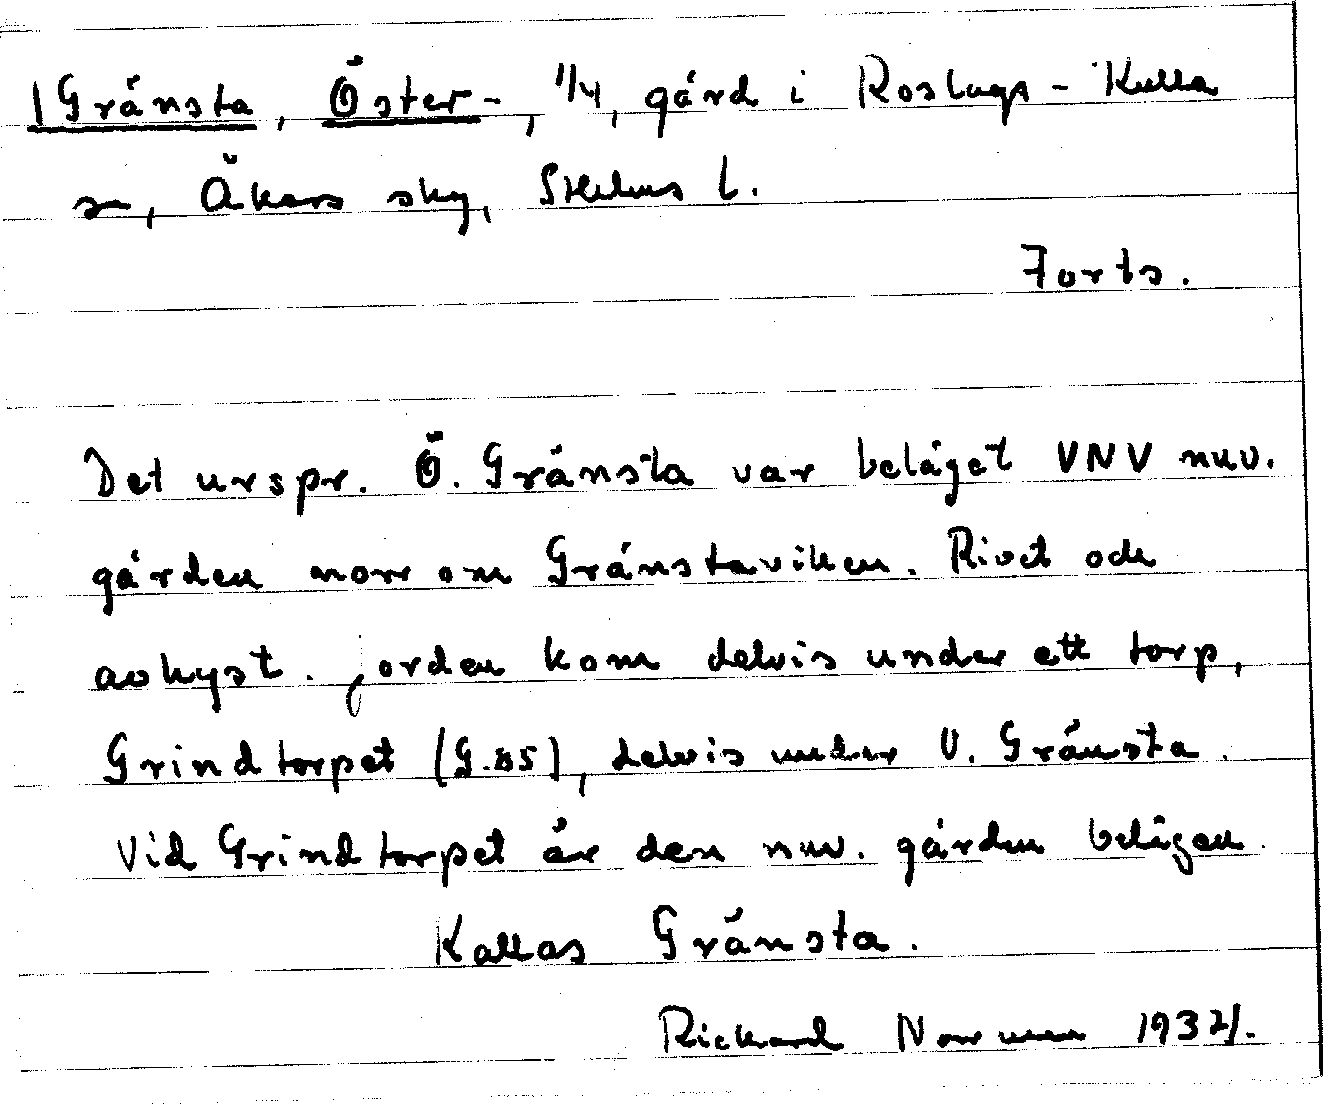 1 Gränsta, Öster-, 1/4, gård i Roslags-Kulla
sn, Åkers sky, Sthlms l.
Forts.
Det urspr. Ö. Gränsta var beläget VNV nuv.
gården norr om Gränstaviken. Rivet och
avhyst. Jorden kom delvis under ett torp,
Grindtorpet (G.85), delvis under V. Gränsta.
Vid Grindtorpet är den nuv. gården belägen.
Kallas Gränsta.
Rickard 1932/.